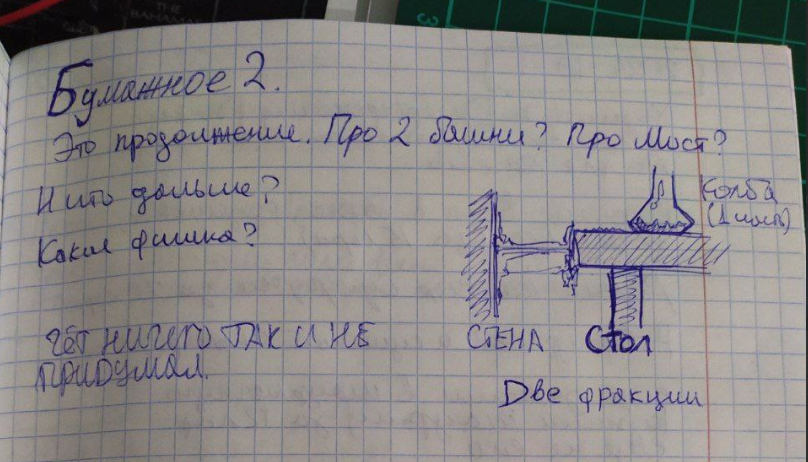 Бумажное 2.
Это продолжение. Про 2 башни? Про Мост?
И что дальше?
Какая фишка?
Колба
(1 часть)
ЧЁТ НИЧЕГО ТАК И НЕ
ПРИДУМАЛ.
СТЕНА
Стол
Две фракции